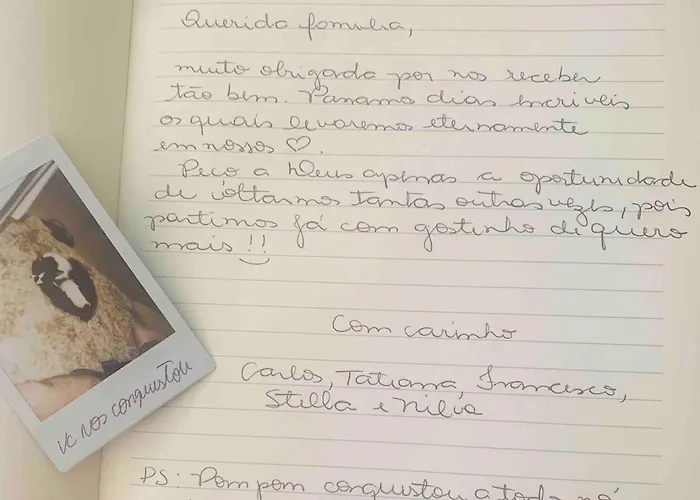 Querida família,
muito obrigada por nos receber
tão bem. Passamos dias incríveis
os quais levaremos eternamente
em nossos ♡.
Peço a Deus apenas a oportunidade
de voltarmos tantas outras vezes, pois
partimos já com gostinho de quero
mais!!
Com carinho
Carlos, Tatiana, Francisco,
Stella e Nilva
PS: Pompom conquistou a todos nós
vc nos conquistou